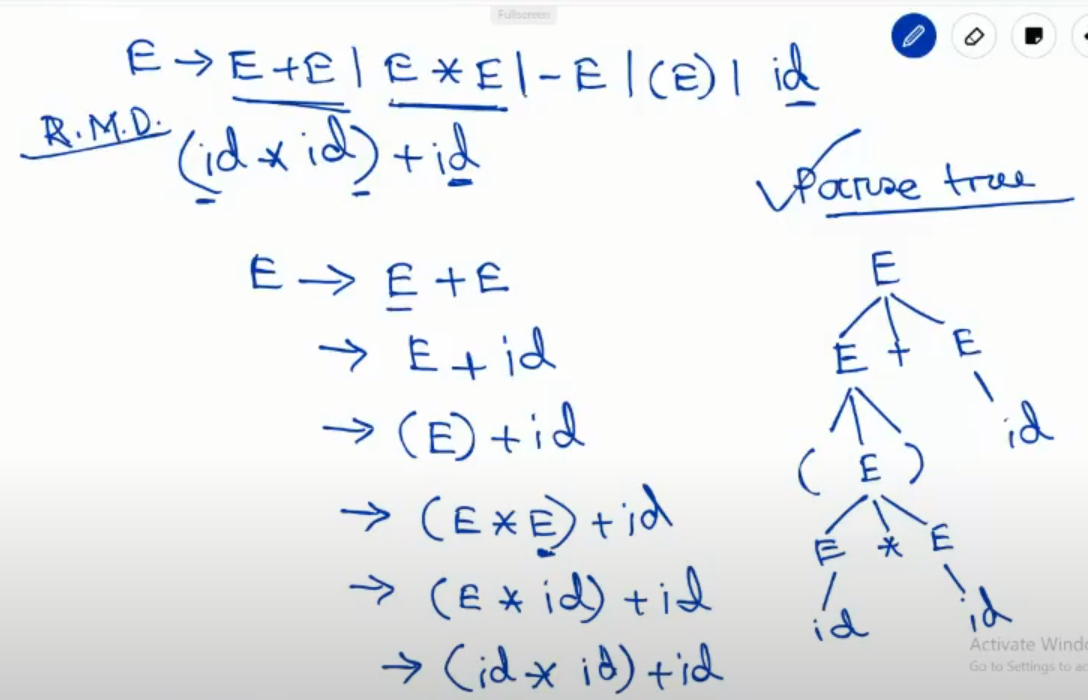 Fullscreen
E → E + E | E * E | - E | (E) | id
R.M.D.
(id * id) + id
Parse tree
E → E + E
→ E + id
→ (E) + id
→ (E * E) + id
→ (E * id) + id
→ (id * id) + id
E
E + E
id
( E )
E * E
id id
Activate Windo
Go to Settings to ac